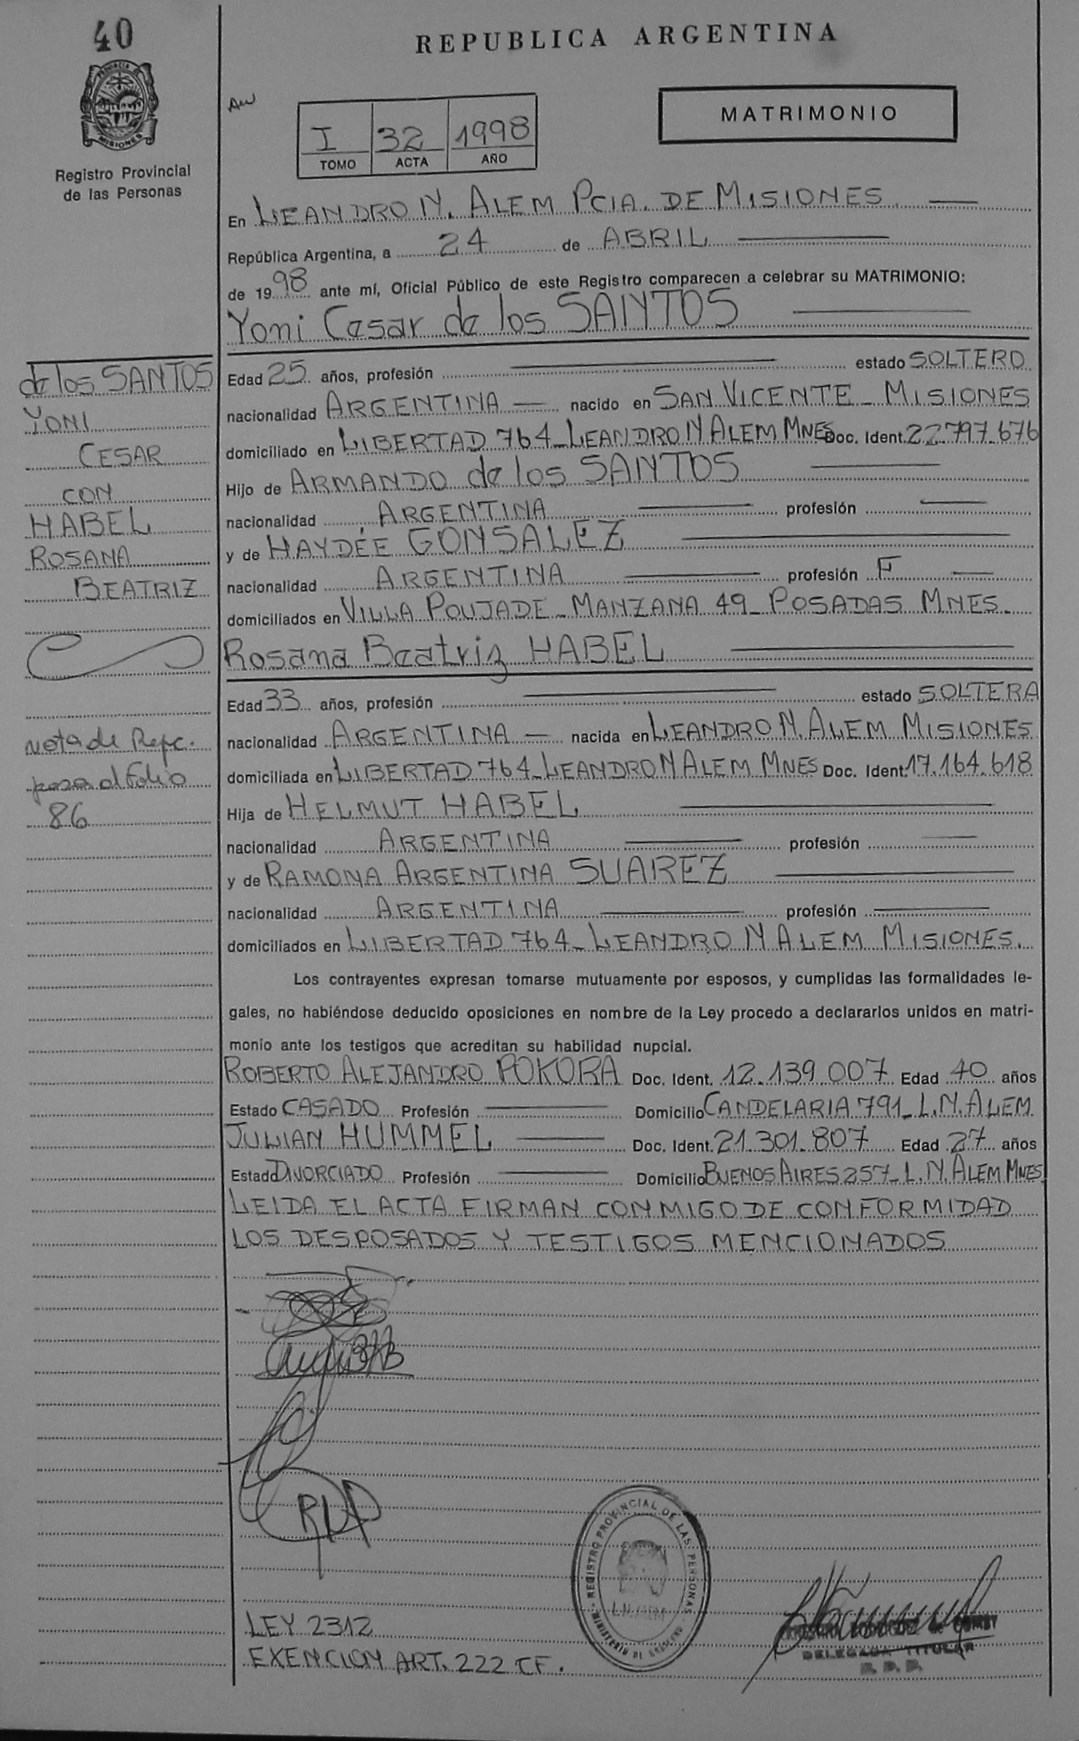 40
REPUBLICA ARGENTINA
PROVINCIA DE MISIONES
Registro Provincial
de las Personas
MATRIMONIO
I 32 1998
TOMO ACTA AÑO
En LEANDRO N. ALEM PCIA. DE MISIONES.
República Argentina, a 24 de ABRIL
de 1998 ante mí, Oficial Público de este Registro comparecen a celebrar su MATRIMONIO:
Yoni Cesar de los SANTOS
de los SANTOS
YONI
CESAR
CON
HABEL
ROSANA
BEATRIZ
Edad 25 años, profesión estado SOLTERO
nacionalidad ARGENTINA nacido en SAN VICENTE - MISIONES
domiciliado en LIBERTAD 764 - LEANDRO N ALEM MNES Doc. Ident. 22.797.676
Hijo de ARMANDO de los SANTOS
nacionalidad ARGENTINA profesión
y de HAYDÉE GONSALEZ
nacionalidad ARGENTINA profesión F
domiciliados en VILLA POUJADE - MANZANA 49 - POSADAS MNES.
Rosana Beatriz HABEL
Edad 33 años, profesión estado SOLTERA
nacionalidad ARGENTINA nacida en LEANDRO N. ALEM MISIONES
domiciliada en LIBERTAD 764 - LEANDRO N ALEM MNES Doc. Ident. 17.164.618
Hija de HELMUT HABEL
nacionalidad ARGENTINA profesión
y de RAMONA ARGENTINA SUAREZ
nacionalidad ARGENTINA profesión
domiciliados en LIBERTAD 764 - LEANDRO N ALEM MISIONES.
nota de Refc.
pasa al folio
86
Los contrayentes expresan tomarse mutuamente por esposos, y cumplidas las formalidades le-
gales, no habiéndose deducido oposiciones en nombre de la Ley procedo a declararlos unidos en matri-
monio ante los testigos que acreditan su habilidad nupcial.
ROBERTO ALEJANDRO POKORA Doc. Ident. 12.139.007 Edad 40 años
Estado CASADO Profesión Domicilio CANDELARIA 791 - L.N. ALEM
JULIAN HUMMEL Doc. Ident. 21.301.807 Edad 27 años
Estado DIVORCIADO Profesión Domicilio BUENOS AIRES 257 - L.N. ALEM MNES
LEIDA EL ACTA FIRMAN CONMIGO DE CONFORMIDAD
LOS DESPOSADOS Y TESTIGOS MENCIONADOS
REGISTRO PROVINCIAL DE LAS PERSONAS
MINISTERIO DE GOBIERNO
LEY 2312
EXENCION ART. 222 CF.
DELEGADA TITULAR
R. P. P.